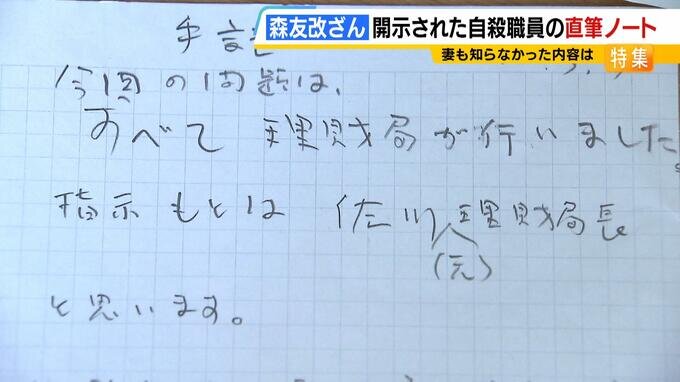 森友改ざん 開示された自殺職員の直筆ノート
妻も知らなかった内容は 特集
今回の問題は、
すべて 理財局が行いました。
指示もとは 佐川理財局長
(元)
と思います。